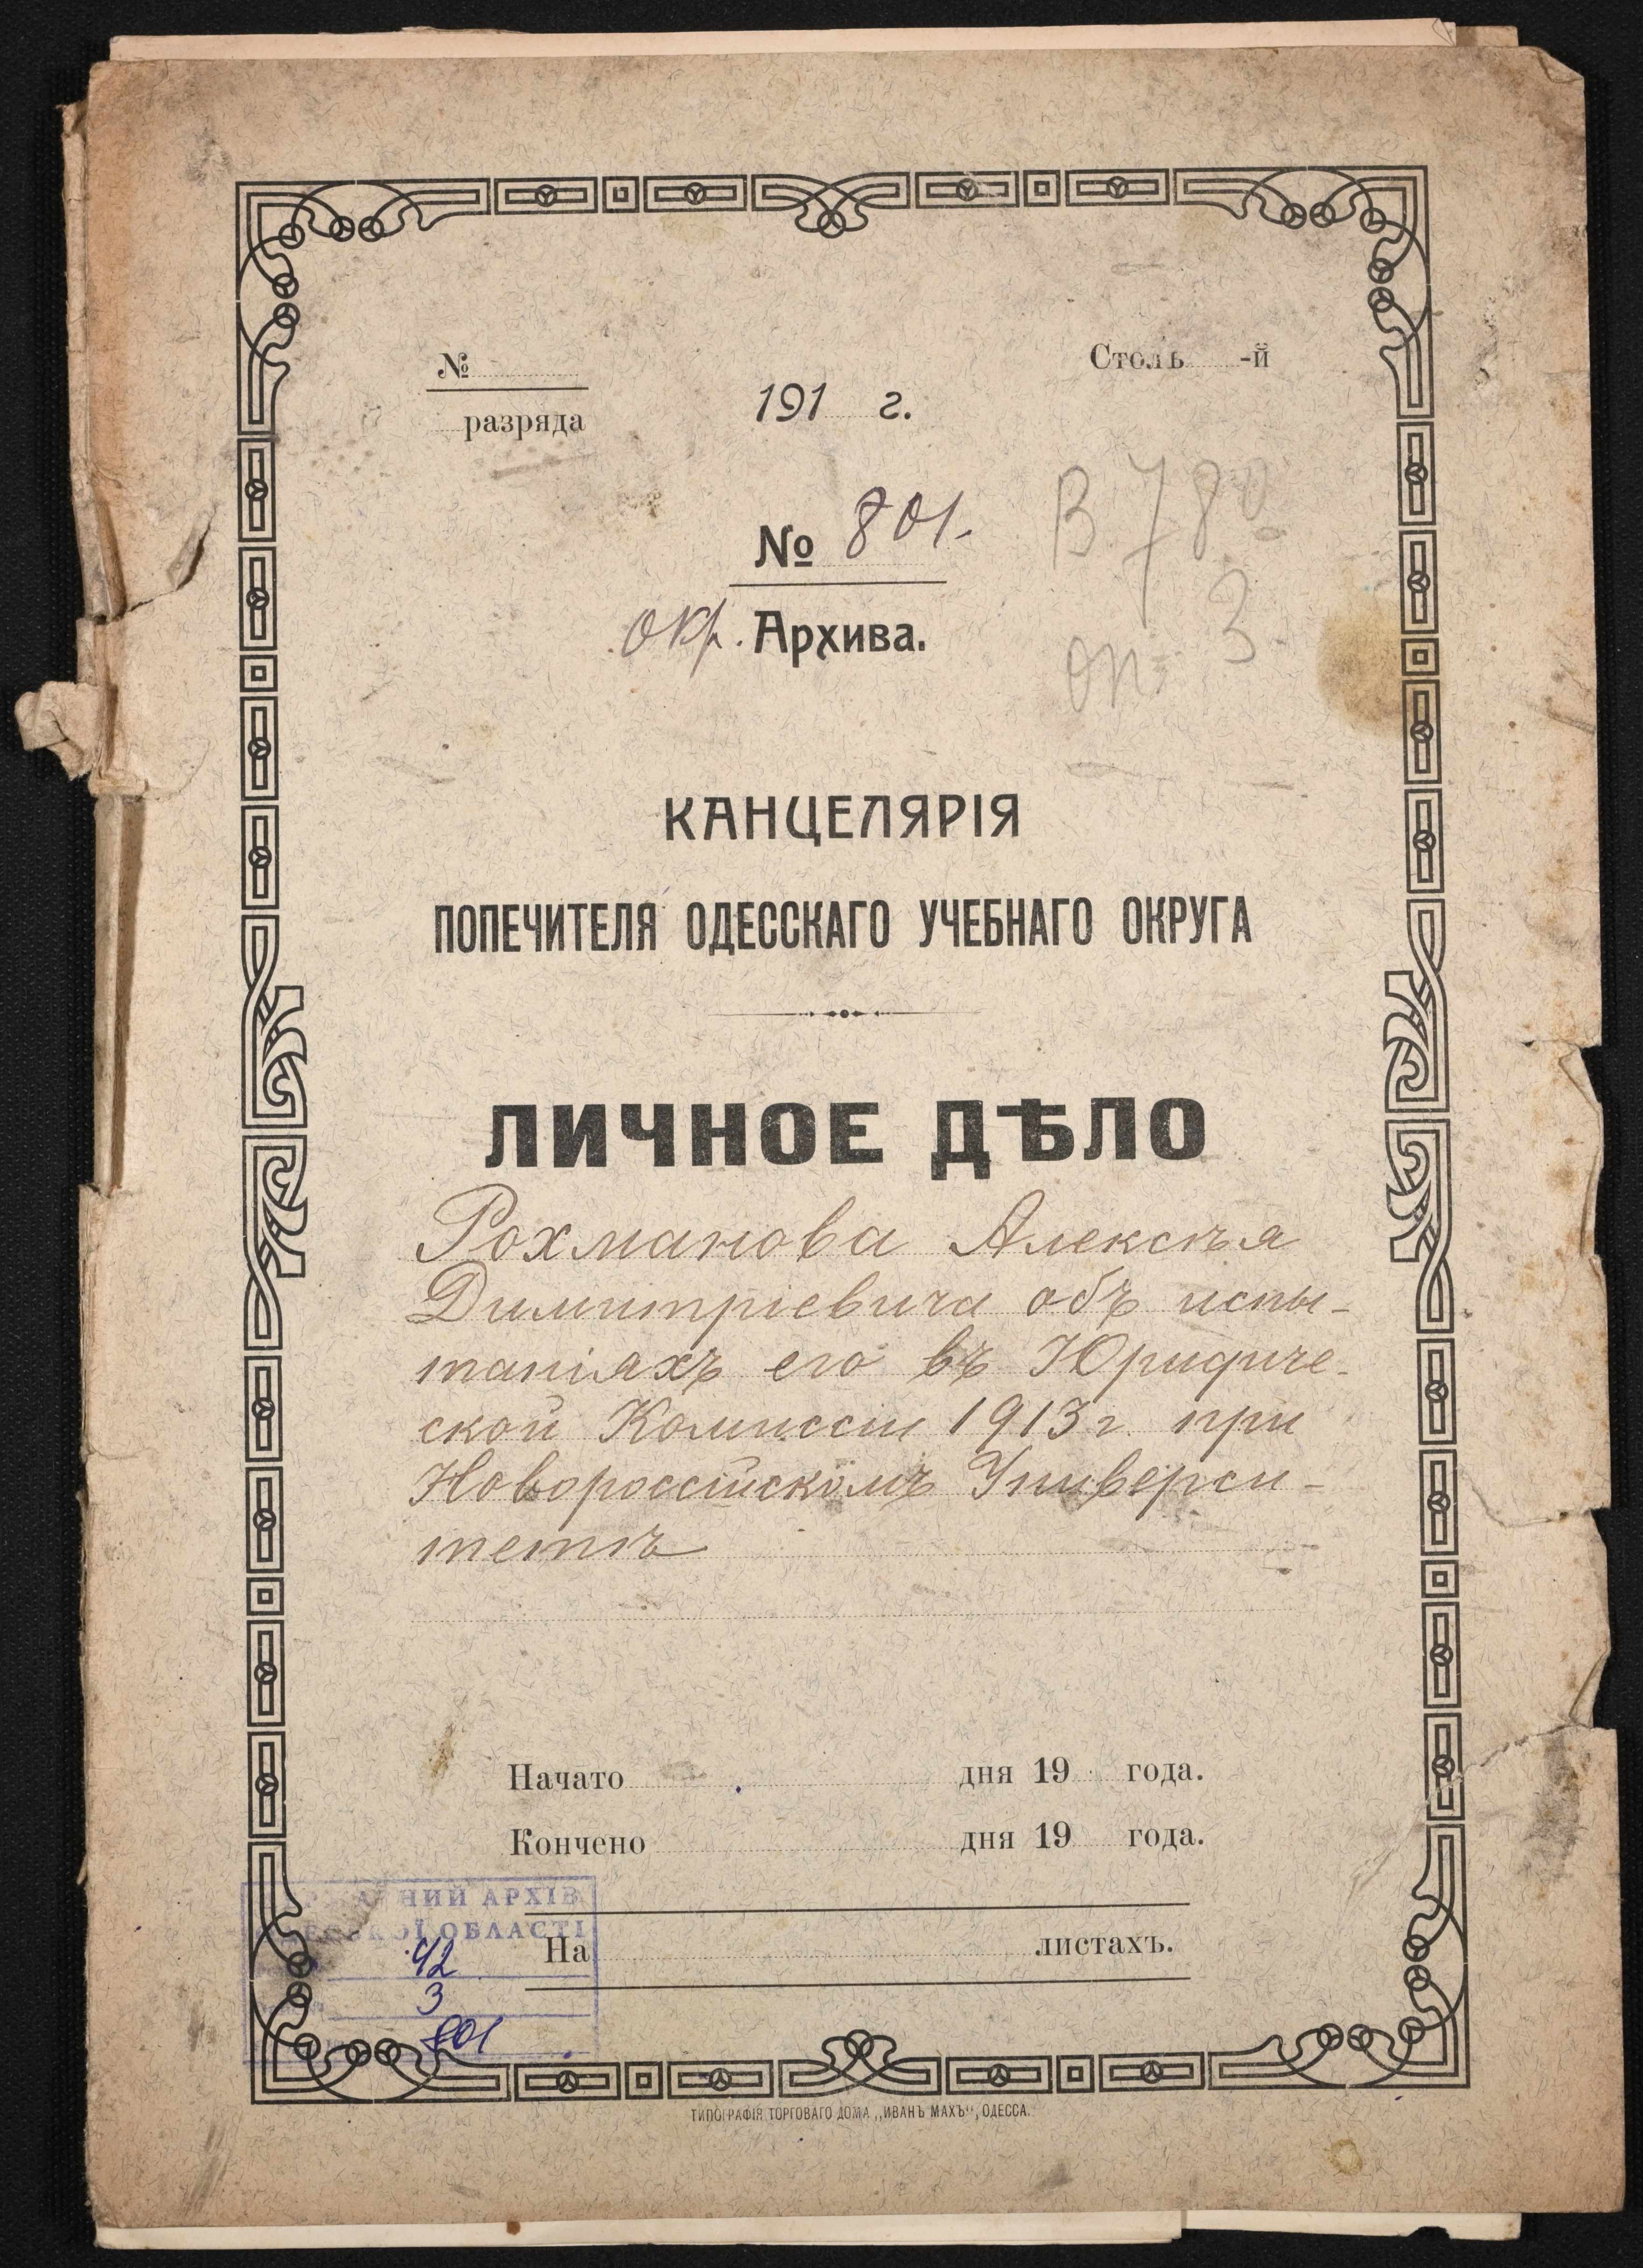 №
разряда
Столъ -й
191 г.
№ 801.
В 780
окр. Архива.
оп. 3
КАНЦЕЛЯРІЯ
ПОПЕЧИТЕЛЯ ОДЕССКАГО УЧЕБНАГО ОКРУГА
ЛИЧНОЕ ДѢЛО
Рохманова Алексѣя
Димитріевича объ испы-
таніяхъ его въ Юридиче-
ской Комиссіи 1913 г. при
Новороссійскомъ Универси-
тетѣ
Начато дня 19 года.
Кончено дня 19 года.
АРХІВ
ОБЛАСТІ
На листахъ.
42
3
801
ТИПОГРАФІЯ ТОРГОВАГО ДОМА „ИВАНЪ МАХЪ“, ОДЕССА.